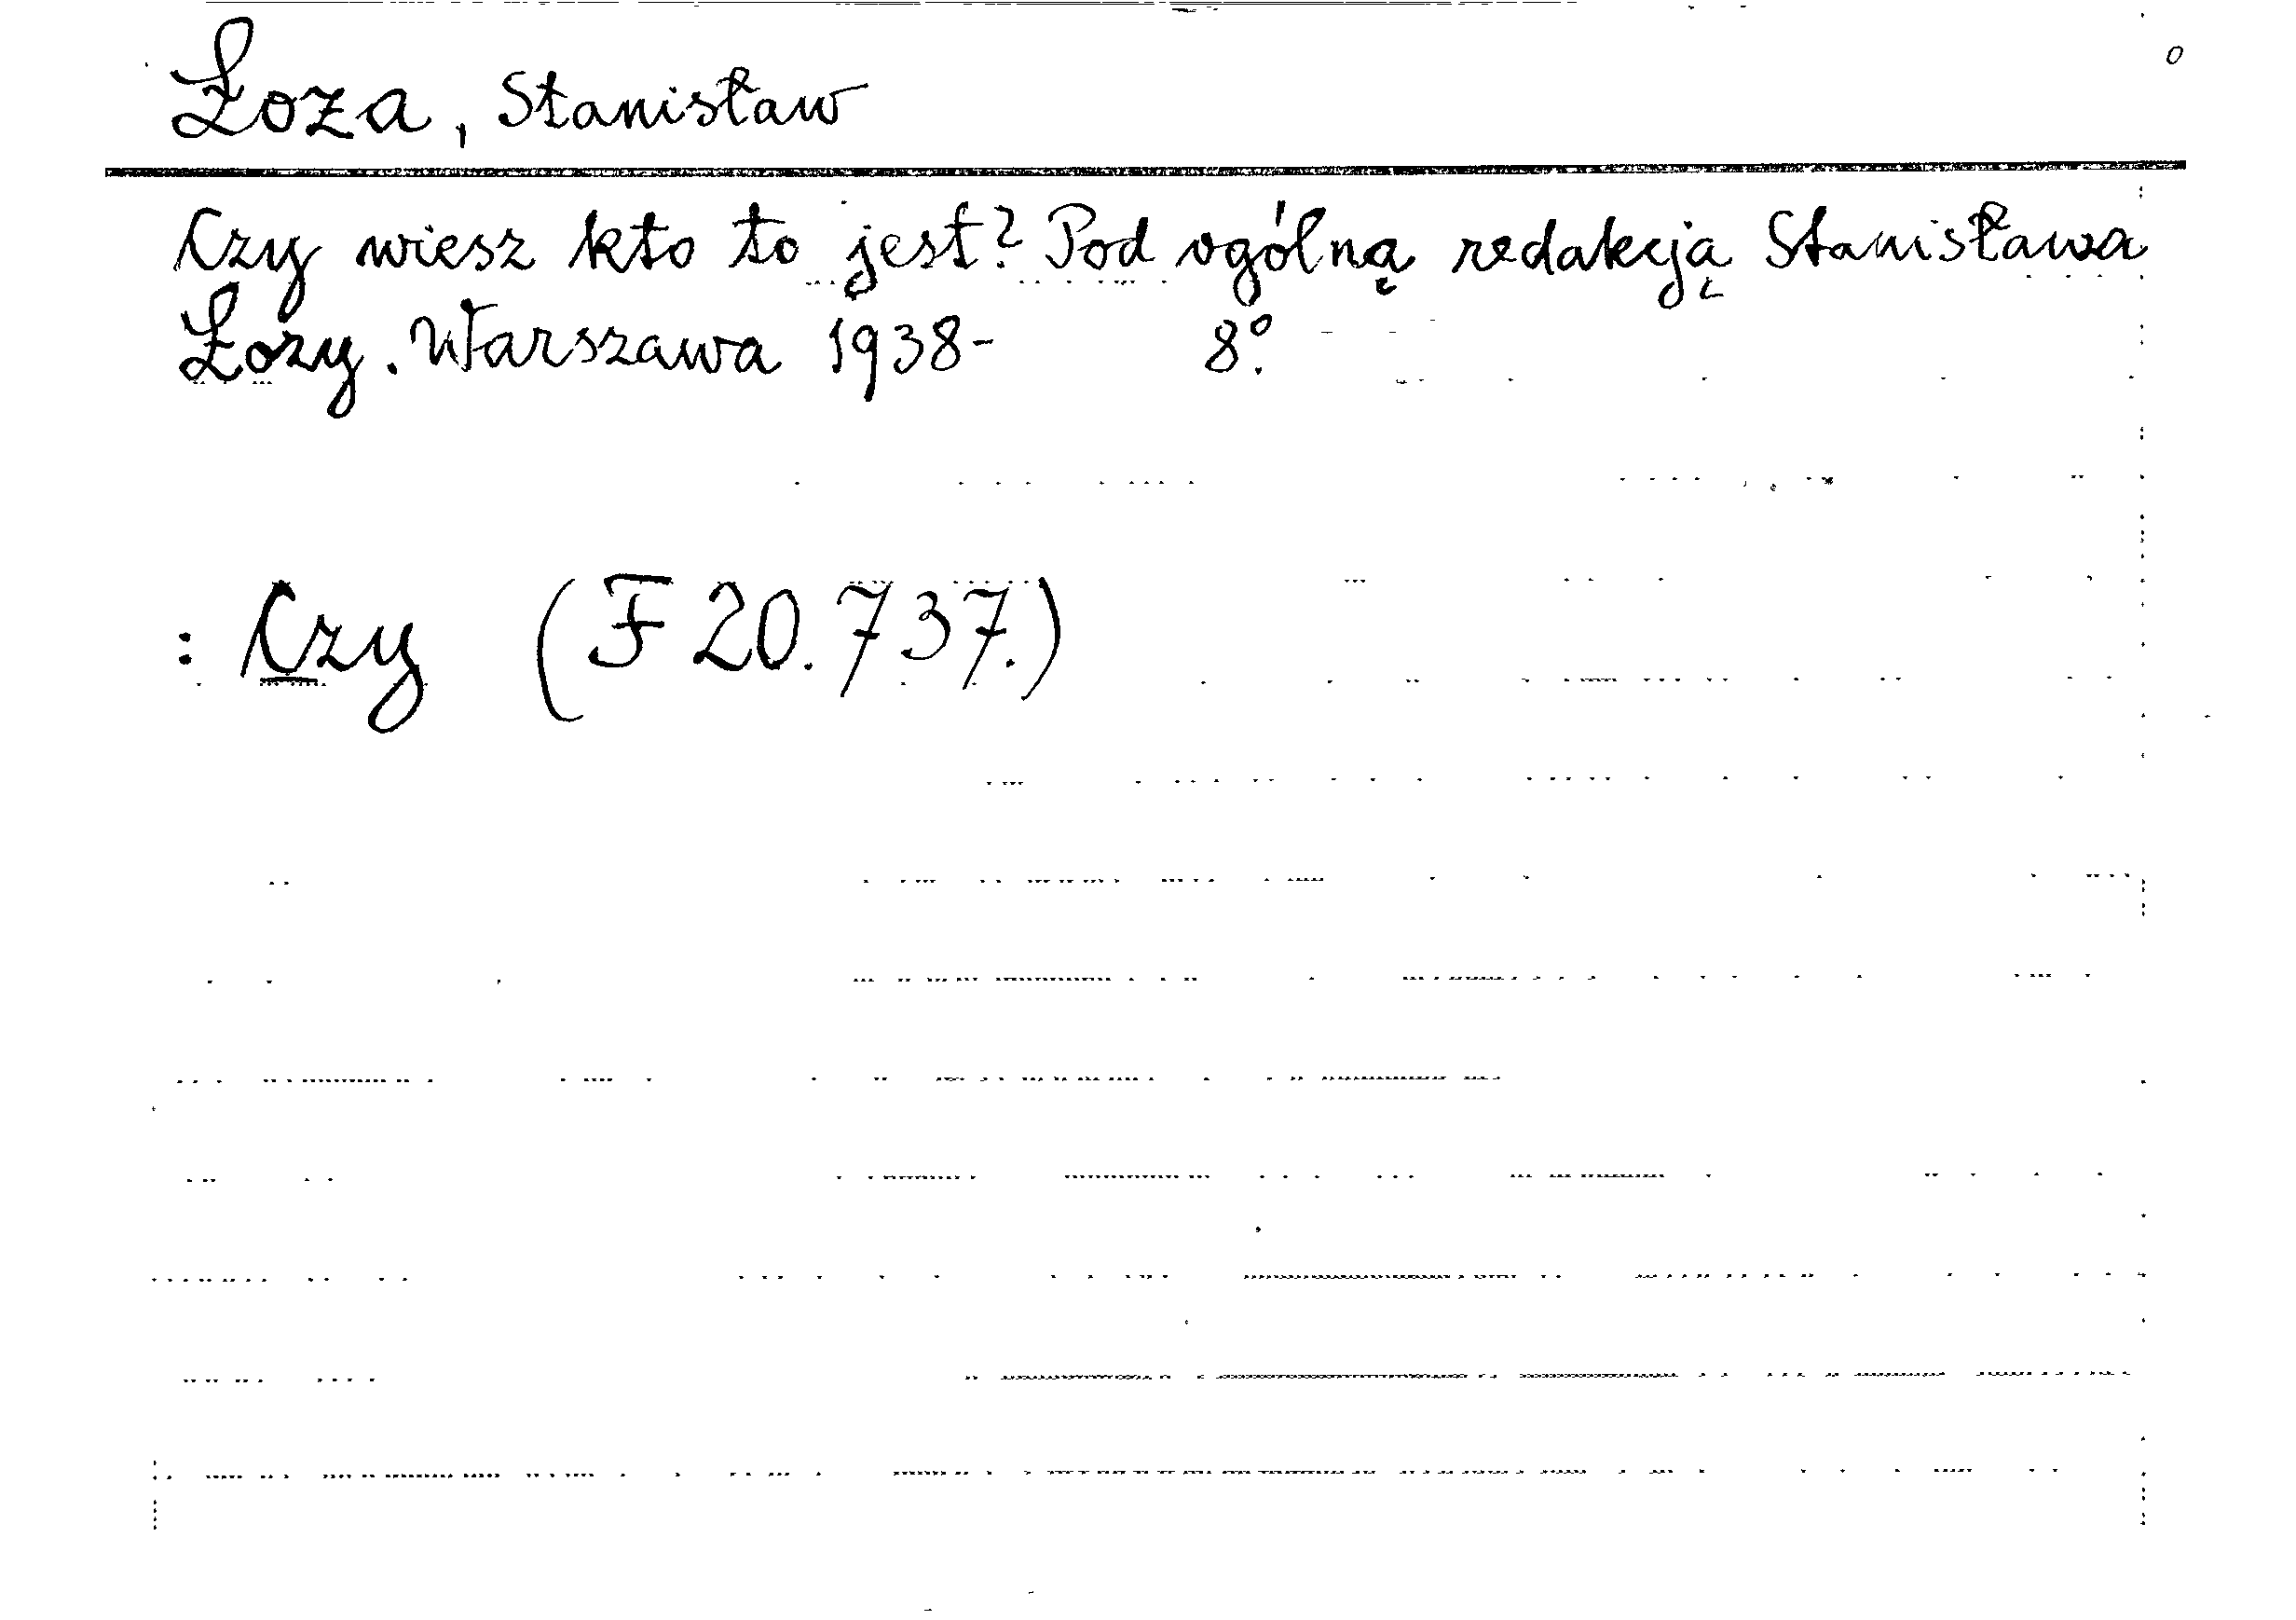 Łoza, Stanisław
Czy wiesz kto to jest? Pod ogólną redakcją Stanisława
Łozy. Warszawa 1938- 8°.
: Czy (F 20.737.)